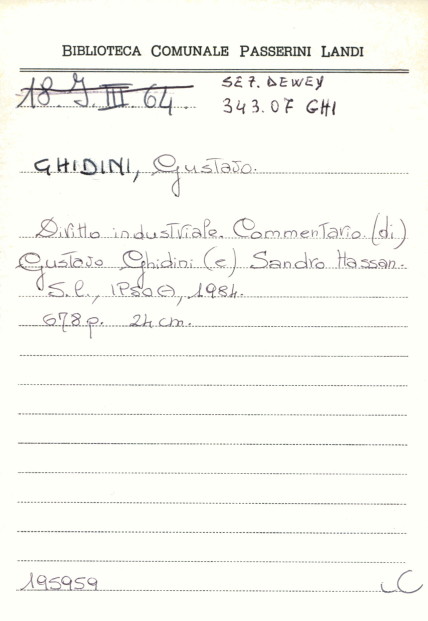 BIBLIOTECA COMUNALE PASSERINI LANDI
18. J. III. 64
SEZ. DEWEY
343.07 GHI
GHIDINI, Gustavo.
Diritto industriale. Commentario (di)
Gustavo Ghidini (e) Sandro Hassan.
S.l., IPSOA, 1984.
678 p. 24 cm.
195959